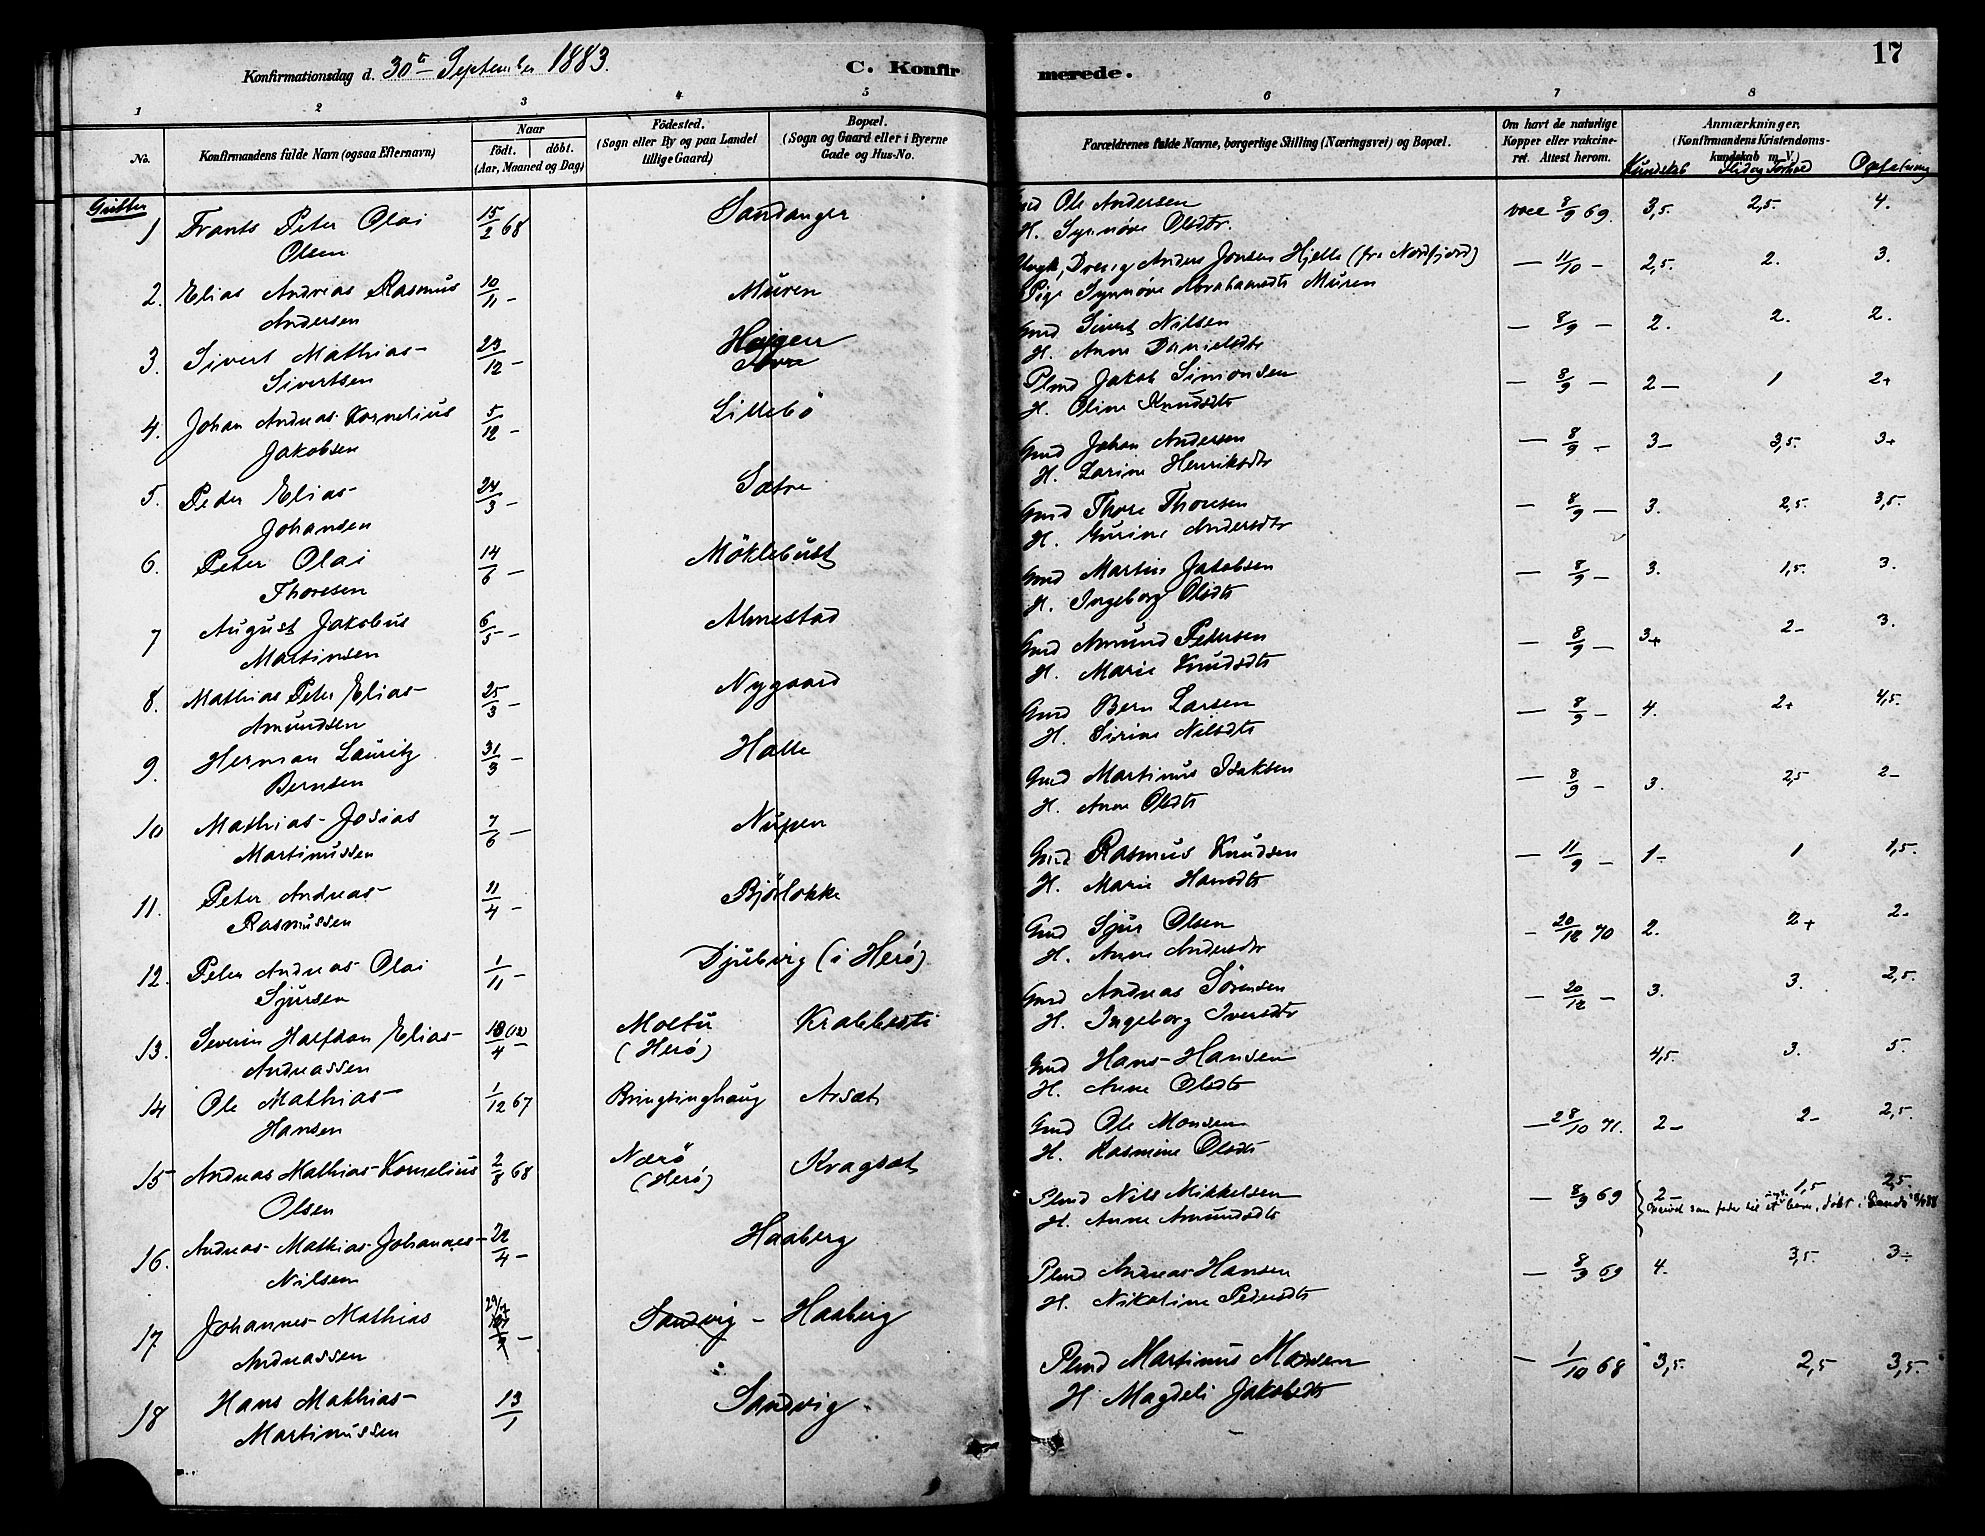 17
Konfirmationsdag d. 30te September 1883.
C. Konfirmerede.
1 2 3 4 5 6 7 8
No.
Konfirmandens fulde Navn (ogsaa Efternavn)
Naar
Födt. döbt.
(Aar, Maaned og Dag)
Födested.
(Sogn eller By og paa Landet
tillige Gaard)
Bopæl.
(Sogn og Gaard eller i Byerne
Gade og Hus-No.
Forældrenes fulde Navne, borgerlige Stilling (Næringsvei) og Bopæl.
Om havt de naturlige
Kopper eller vakcine-
ret. Attest herom.
Anmærkninger,
(Konfirmandens Kristendoms-
kundskab m. V.)
Kundskab Flid og Forhold Opfatning
Gutter
1 Frants Peter Olai 15/2 68 Sandanger Gmd Ole Andersen vacc 8/9 69. 3,5. 2,5. 4.
Olsen H. Synnöve Olsdtr.
2. Elias Andreas Rasmus 10/11 – Muren Ungk, Dreng Anders Jonsen Hjelle (fra Nordfjord) — 11/10 – 2,5. 2. 3.
Andersen Pige Synnöve Abrahamsdtr Muren
3. Sivert Mathias 23/12 – Hojgen Gmd Sivert Nilsen — 8/9 – 2. 2. 2.
Sivertsen H. Anne Danielsdtr
4. Johan Andreas Kornelius 5/12 – Lillebö Plmd Jakob Simonsen — 8/9 – 2– 1 2+
Jakobsen H. Oline Knudsdtr
5. Peder Elias 24/3 – Sætre Gmd Johan Andersen — 8/9 – 3– 3,5. 3+
Johansen H. Larine Henriksdtr
6. Peter Olai 14/6 – Möklebust Gmd Thore Thoresen — 8/9 – 3. 2,5. 3,5.
Thoresen H. Gurine Andersdtr
7 August Jakobus 6/5 – Almestad Gmd Martin Jakobsen — 8/9 – 3. 1,5. 3.
Martinsen H. Ingeborg Olsdtr
8. Mathias Peter Elias 25/3 – Nygaard Gmd Amund Petersen — 8/9 – 3+ 2– 3.
Amundsen H. Marie Knudsdtr
9. Herman Lauritz 31/3 – Halle Gmd Bern Larsen — 8/9 – 4. 2+ 4,5.
Bernsen H. Sirine Nilsdtr
10 Mathias Josias 7/6 — Nupen Gmd Martinus Isaksen — 8/9 – 3. 2,5 2–
Martinussen H. Anne Olsdtr
11. Peter Andreas 11/4 – Björlokke Gmd Rasmus Knudsen — 11/9 – 1– 1 1,5.
Rasmussen H. Marie Hansdtr
12. Peter Andreas Olai 1/11 – Djubvig (i Herö) Gmd Sjur Olsen – 20/12 70 2. 2+ 2–
Sjursen H. Anne Andersdtr
13. Severin Halfdan Elias 18/4 – Moltu Krabbesti Gmd Andreas Sörensen – 20/12 – 3. 3. 2,5.
Andreassen (Herö) H. Ingeborg Iversdtr
14 Ole Mathias 1/12 67 Bringsinghaug Arsæt Gmd Hans Hansen 4,5. 3. 5.
Hansen H. Anne Olsdtr
15 Andreas Mathias Kornelius 2/8 68 Nærö Kragsæt Gmd Ole Monsen — 28/10 71. 2– 2– 2,5.
Olsen (Herö) H. Rasmine Olsdtr
16. Andreas Mathias Johannes 22/4 – Haaberg Plmd Nils Mikkelsen — 8/9 69 2– 1,5 2,5.
Nilsen H. Anne Amundsdtr
17 Johannes Mathias 29/7 – Sandvig – Haaberg Plmd Andreas Hansen — 8/9 69 4. 3,5. 3÷
Andreassen H. Nikoline Pedersdtr
18 Hans Mathias 13/1 Sandvig Plmd Martinus Monsen — 1/10 68 3,5. 2,5 3,5.
Martinussen H Magdeli Jakobsdtr